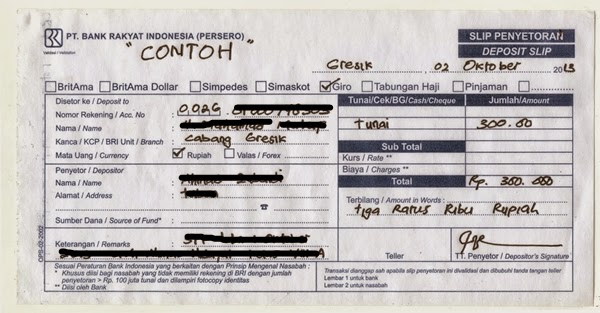 BRI PT. BANK RAKYAT INDONESIA (PERSERO)
SLIP PENYETORAN
DEPOSIT SLIP
Validasi / Validation
"CONTOH"
Gresik, 02 Oktober 2013
BritAma BritAma Dollar Simpedes Simaskot Giro Tabungan Haji Pinjaman
Disetor ke / Deposit to
Nomor Rekening / Acc. No 0026
Nama / Name
Kanca / KCP / BRI Unit / Branch Cabang Gresik
Mata Uang / Currency Rupiah Valas / Forex
Penyetor / Depositor
Nama / Name
Alamat / Address
Sumber Dana / Source of Fund*
Keterangan / Remarks
Tunai/Cek/BG/Cash/Cheque Jumlah/Amount
Tunai 300.00
Sub Total
Kurs / Rate **
Biaya / Charges **
Total Rp. 300.000
Terbilang / Amount In Words :
Tiga Ratus Ribu Rupiah
Teller TT. Penyetor / Depositor's Signature
Sesuai Peraturan Bank Indonesia yang berkaitan dengan Prinsip Mengenal Nasabah :
* Khusus diisi bagi nasabah yang tidak memiliki rekening di BRI dengan jumlah
penyetoran > Rp. 100 juta tunai dan dilampiri fotocopy identitas
** Diisi oleh Bank
Transaksi dianggap sah apabila slip penyetoran ini divalidasi dan dibubuhi tanda tangan teller
Lembar 1 untuk bank
Lembar 2 untuk nasabah
OPS-02-2002